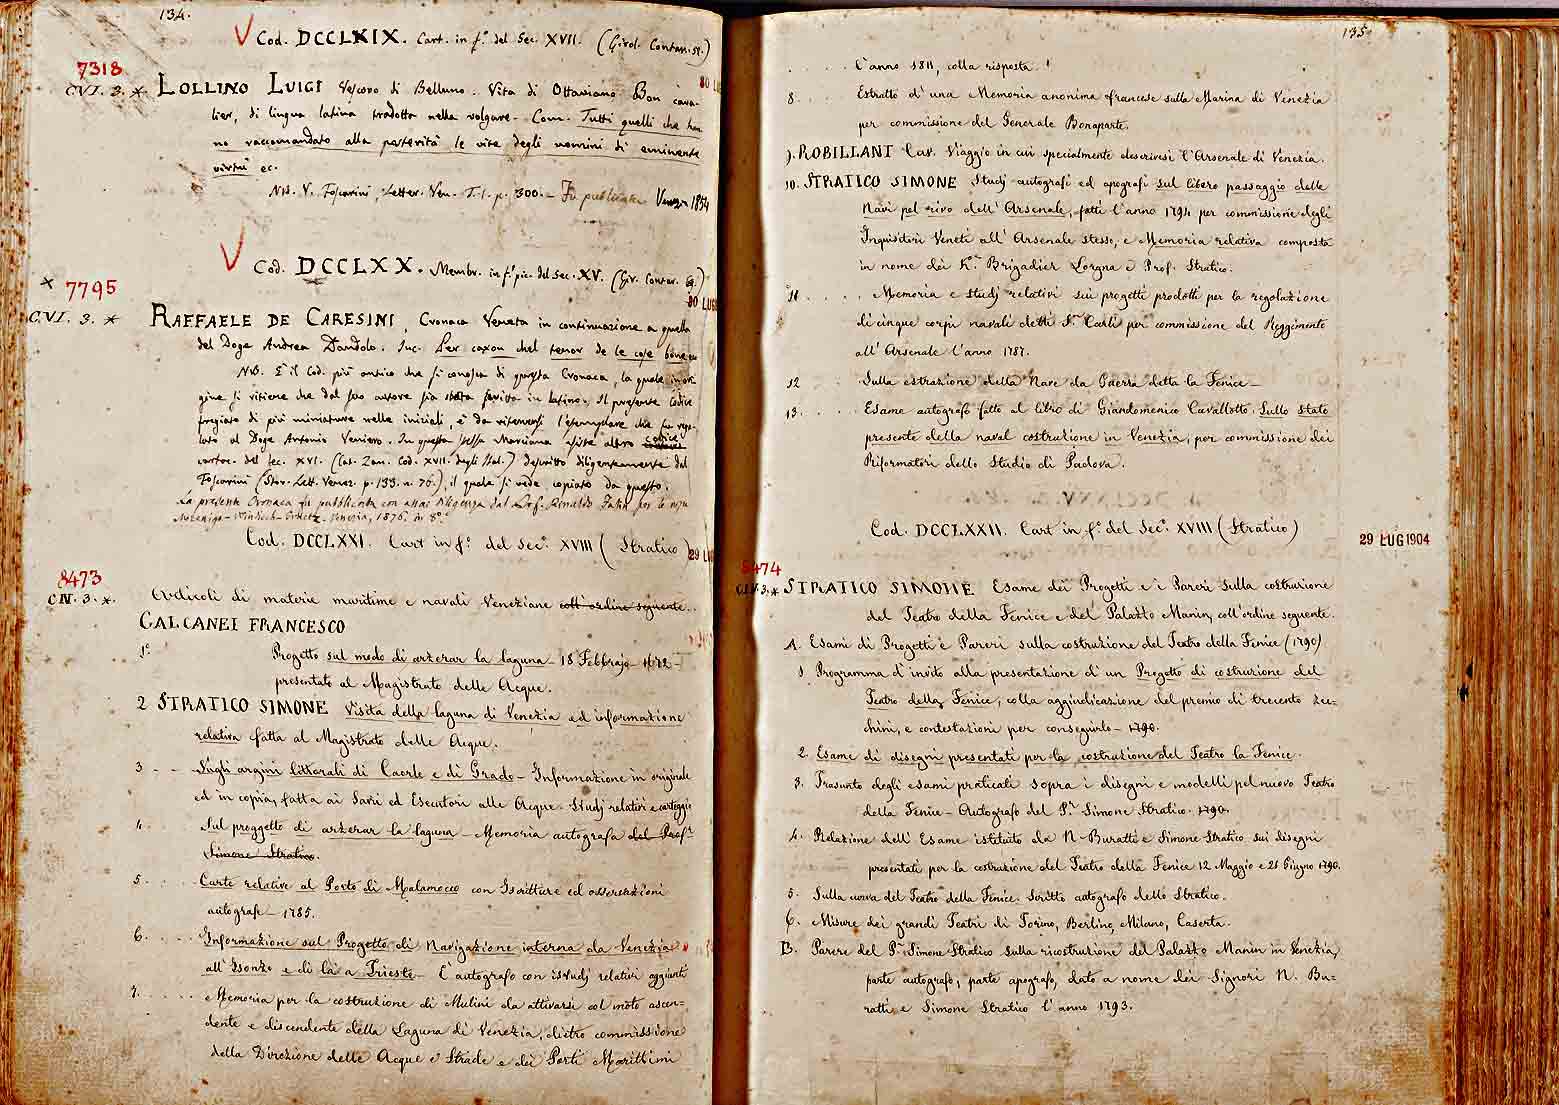 134.
Cod. DCCLXIX. Cart. in f.º del Sec. XVII. (Girol. Contar. 59.)
7318
80 LU
C.VI. 3. * LOLLINO LUIGI Vescovo di Belluno. Vita di Ottaviano Bon cava-
lier, di lingua latina tradotta nella volgare. Com. Tutti quelli che han
no raccomandato alla posterità le vite degli uomini di eminente
virtù ec.
NB. V. Foscarini, Letter. Ven. T. I. p. 300. – Fu pubblicata Venezia 1854
Cod. DCCLXX. Membr. in f.º pic. del Sec. XV. (Gir. Contar.
× 7795
30 LUG
C.VI. 3. * RAFFAELE DE CARESINI, Cronaca Veneta in continuazione a quella
del Doge Andrea Dandolo. Inc. Per caxon chel tenor de le cose
NB. È il Cod. più antico che si conosca di questa Cronaca, la quale in ori
gine si ritiene che dal suo autore sia stata scritta in latino. Il presente Codice
fregiato di più miniature nelle iniziali, è da ritenersi l'esemplare che fu rega-
lato al Doge Antonio Veniero. In questa stessa Marciana esiste altro codice
cartac. del Sec. XVI. (Cat. Zan. Cod. XVII. degli Ital.) descritto diligentemente dal
Foscarini (Stor. Lett. Venez. p. 133. n. 76.), il quale si vede copiato da questo.
La presente Cronaca fu pubblicata con assai diligenza dal Prof. Rinaldo Fulin per le nozze
Mocenigo - Windisch-Graetz. Venezia, 1876. in 8º.
Cod. DCCLXXI. Cart in f.º del Sec.º XVIII (Stratico)
29 LU
8473
C.IV. 3. *. Articoli di materie marittime e navali Veneziane coll'ordine seguente..
GALCANEI FRANCESCO
1º Progetto sul modo di arzerar la laguna – 18 Febbrajo 1672 –
presentato al Magistrato delle Acque.
2 STRATICO SIMONE Visita della laguna di Venezia ed informazione
relativa fatta al Magistrato delle Acque.
3 - - Sugli argini littorali di Caorle e di Grado – Informazione in originale
ed in copia, fatta ai Savi ed Esecutori alle Acque. Studj relativi e carteggio
4. . . Sul proggetto di arzerar la laguna – Memoria autografa del Prof.r
Simone Stratico.
5. . . . Carte relative al Porto di Malamocco con Iscritture ed osservazioni
autografe – 1785.
6. . . . . Informazione sul Progetto di Navigazione interna da Venezia
all'Isonzo e di là a Trieste – L'autografo con istudj relativi aggiunti
7. . . . . e Memoria per la costruzione di Mulini da attivarsi col moto ascen-
dente e discendente della Laguna di Venezia, dietro commissione
della Direzione delle Acque e Strade e dei Porti Marittimi
135.
. . . . l'anno 1811, colla risposta.
8. . . . Estratto d'una Memoria anonima francese sulla Marina di Venezia
per commissione del Generale Bonaparte.
9. ROBILLANT Cav. Viaggio in cui specialmente descrivesi l'Arsenale di Venezia.
10. STRATICO SIMONE Studj autografi ed apografi sul libero passaggio delle
Navi pel rivo dell'Arsenale, fatti l'anno 1794 per commissione degli
Inquisitori Veneti all'Arsenale stesso, e Memoria relativa composta
in nome dei K.r Brigadier Lorgna e Prof. Stratico.
11 . . . . . Memoria e studj relativi sui progetti prodotti per la regolazione
di cinque corpi navali detti F.ta Carli per commissione del Reggimento
all'Arsenale l'anno 1787.
12 . . . Sulla estrazione della Nave da Guerra detta la Fenice –
13. . . . Esame autografo fatto al libro di Giandomenico Cavallotto Sullo stato
presente della naval costruzione in Venezia, per commissione dei
Riformatori dello Studio di Padova.
Cod. DCCLXXII. Cart in f.º del Sec.º XVIII (Stratico)
29 LUG 1904
8474
C.IV. 3. * STRATICO SIMONE Esame dei Progetti e i Pareri sulla costruzione
del Teatro della Fenice e del Palazzo Manin, coll'ordine seguente.
A. Esami di Progetti e Pareri sulla costruzione del Teatro della Fenice (1790)
1 Programma d'invito alla presentazione d'un Progetto di costruzione del
Teatro della Fenice, colla aggiudicazione del premio di trecento Zec-
chini, e contestazioni per conseguirlo – 1790.
2. Esame di disegni presentati per la costruzione del Teatro la Fenice.
3. Trasunto degli esami praticati sopra i disegni e modelli pel nuovo Teatro
della Fenice – Autografo del P.r Simone Stratico. 1790.
4. Relazione dell'Esame istituito da N. Buratti e Simone Stratico sui disegni
presentati per la costruzione del Teatro della Fenice 12 Maggio e 21 Giugno 1790.
5. Sulla curva del Teatro della Fenice. Scritto autografo dello Stratico.
6. Misure dei grandi Teatri di Torino, Berlino, Milano, Caserta.
B. Parere del P.r Simone Stratico sulla ricostruzione del Palazzo Manin in Venezia,
parte autografo, parte apografo, dato a nome dei Signori N. Bu-
ratti e Simone Stratico l'anno 1793.